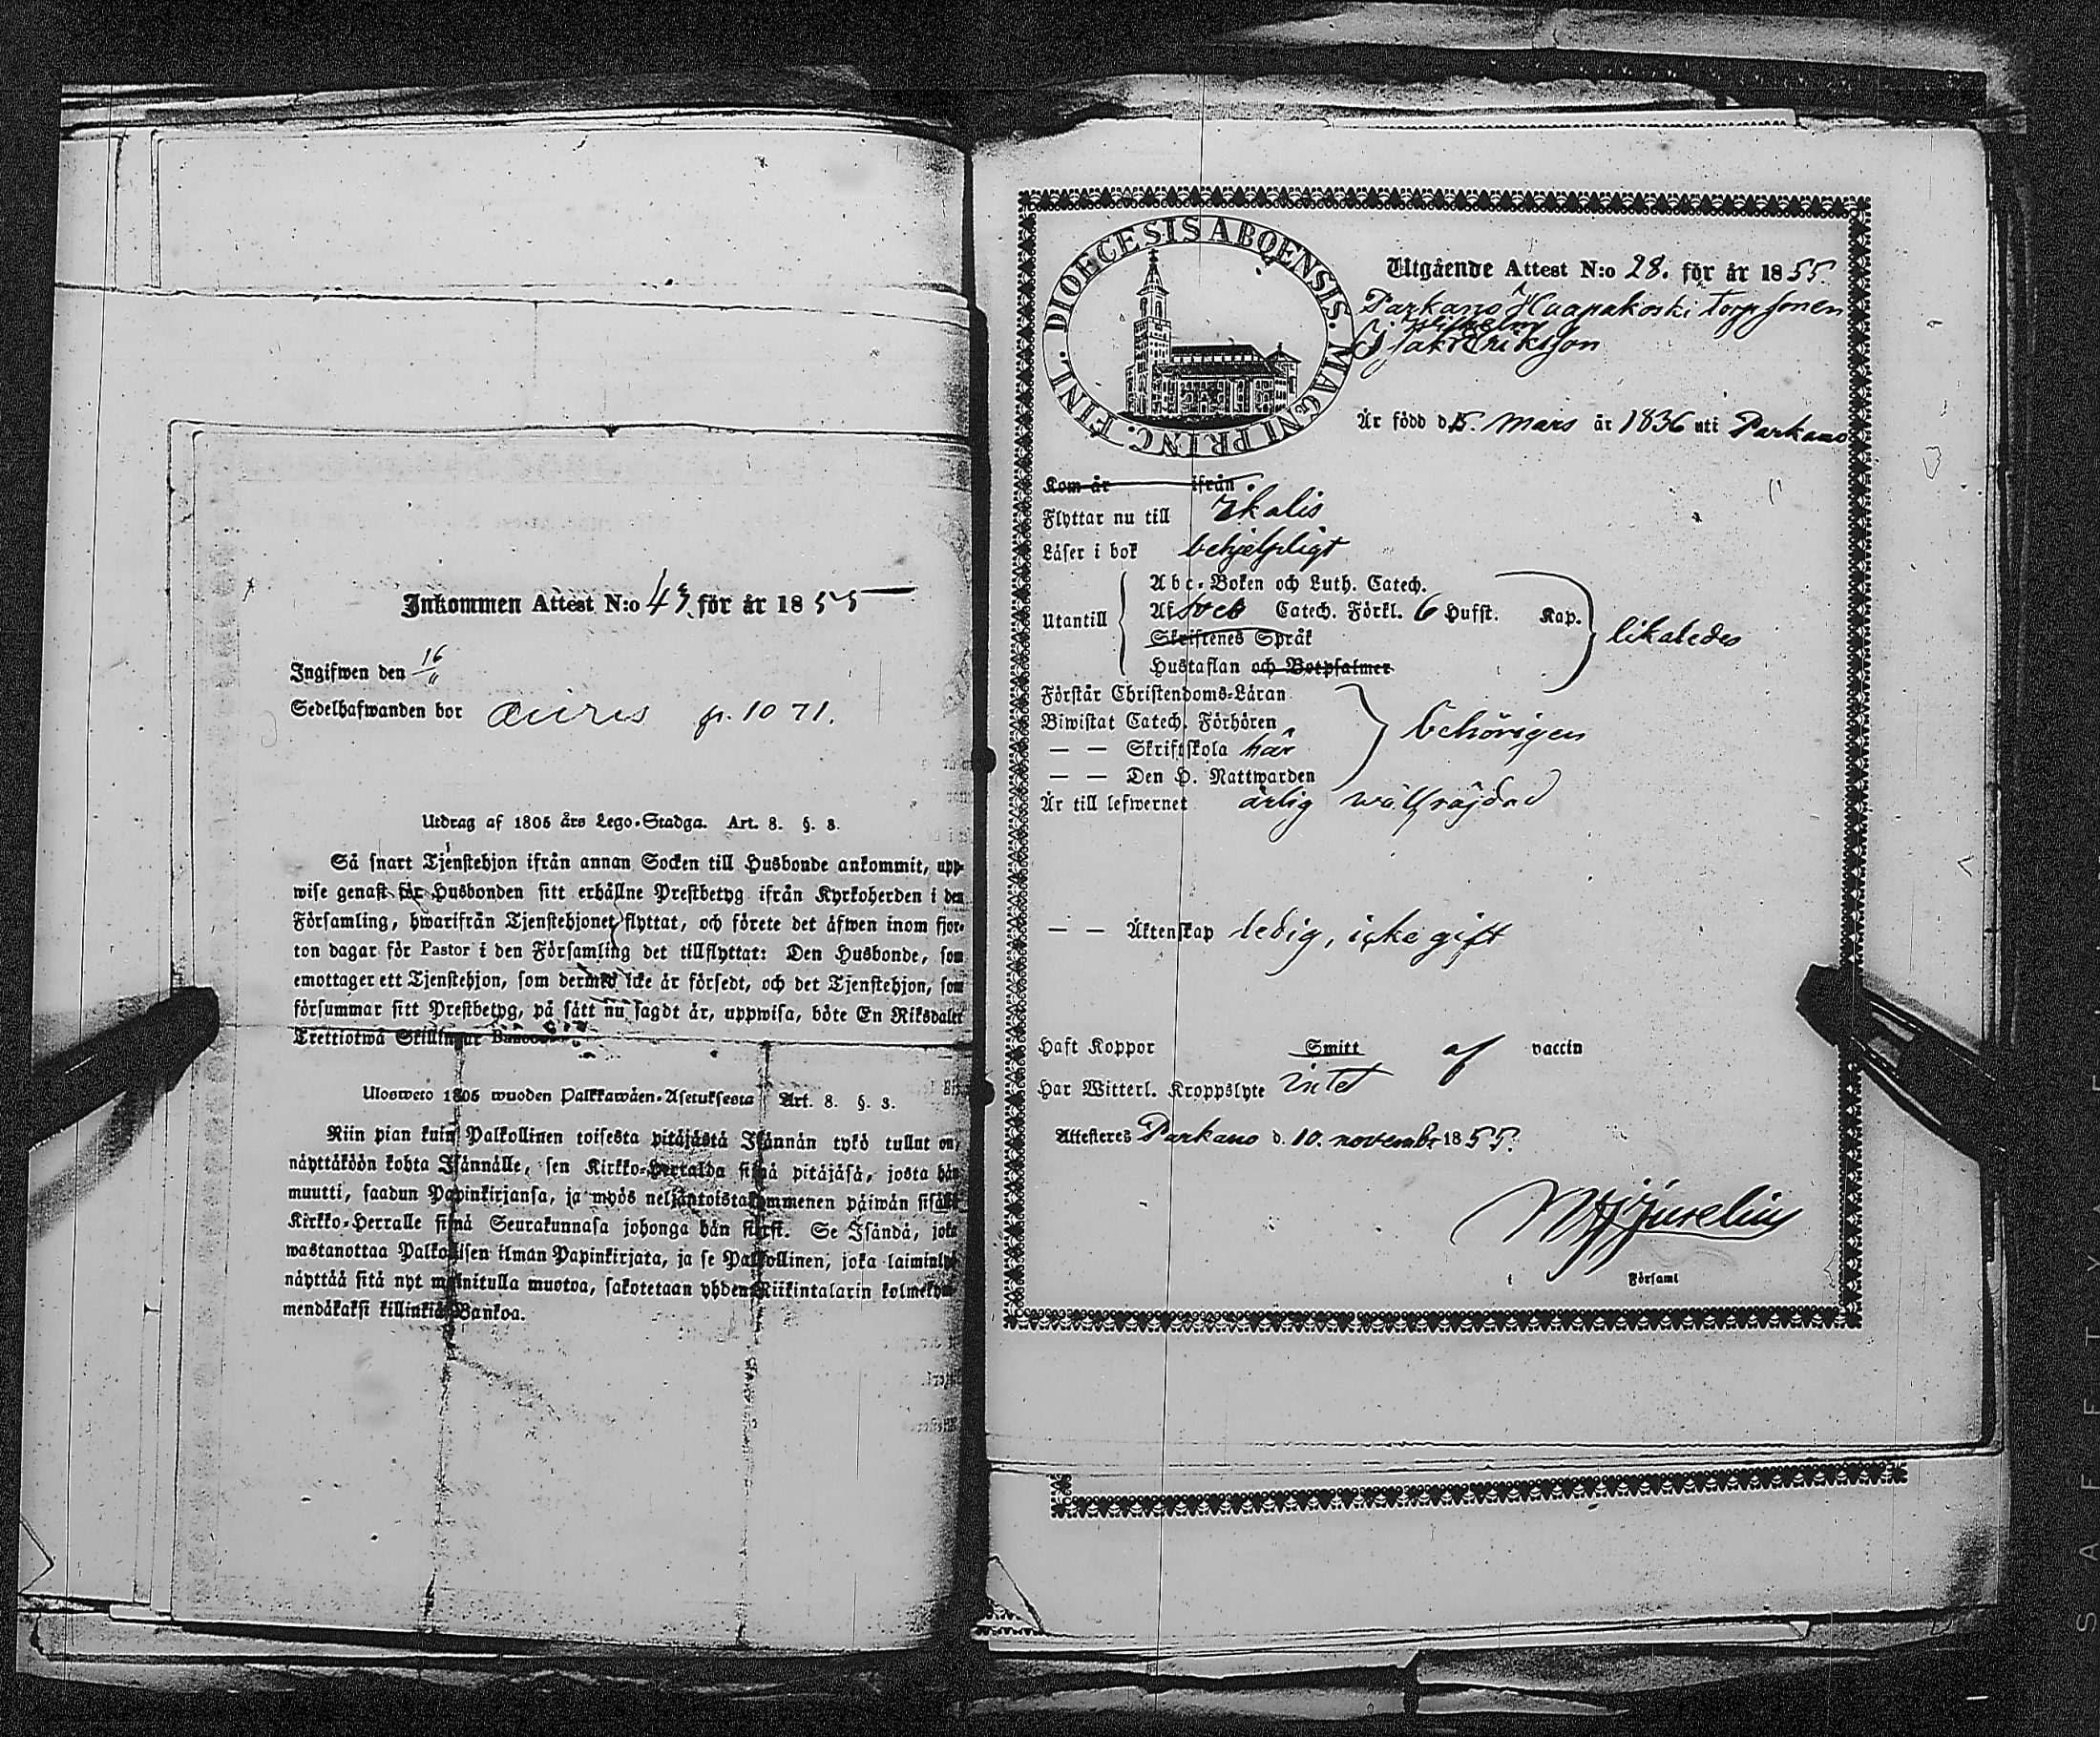 Inkommen Attest N:o 43 för år 1855
Ingifwen den 16/11
Sedelhafwanden bor p. 1071.
Utdrag af 1805 års Lego-Stadga. Art. 8. §. 3.
Så snart Tjenstehjon ifrån annan Socken till Husbonde ankommit, upp-
wise genast för Husbonden sitt erhållne Prestbetyg ifrån Kyrkoherden i den
Församling, hwarifrån Tjenstehjonet flyttat, och förete det äfwen inom fjor-
ton dagar för Pastor i den Församling det tillflyttat: Den Husbonde, som
emottager ett Tjenstehjon, som dermed icke är försedt, och det Tjenstehjon, som
försummar sitt Prestbetyg, på sätt nu sagdt är, uppwisa, böte En Riksdaler
Trettiotwå Skillingar Banco.
Ulosweto 1805 wuoden Palkkawäen-Asetuksesta Art. 8. §. 3.
Niin pian kuin Palkollinen toisesta pitäjästä Isännän tykö tullut on,
näyttäköön kohta Isännälle, sen Kirkko-Herralda siinä pitäjäsä, josta hän
muutti, saadun Papinkirjansa, ja myös neljäntoistakymmenen päiwän sisällä
Kirkko-Herralle siinä Seurakunnasa johonga hän siirsi. Se Isändä, joka
wastanottaa Palkollisen ilman Papinkirjata, ja se Palkollinen, joka laiminlyö
näyttää sitä nyt mainitulla muotoa, sakotetaan yhden Riikintalarin kolmekym-
mendäkaksi killinkiä Bankoa.
DIOECESIS ABOENSIS. MAGNI PRINC. FINL.
Utgående Attest N:o 28. för år 1855.
Parkano Haapakoski torpsonen
Wilhelm
Eriksson
Är född d. 15. Mars år 1836 uti Parkano
Kom år ifrån
Flyttar nu till Ikalis
Läser i bok behjelpligt
Abc-Boken och Luth. Catech.
Utantill Af Sveb Catech. Förkl. 6 Hufst. Kap. likaledes
Skriftenes Språk
Hustaflan och Botpsalmer
Förstår Christendoms-Läran
Biwistat Catech. Förhören behörigen
— — Skriftskola här
— — Den H. Nattwarden
Är till lefwernet ärlig wälfräjdad
— — Äktenskap ledig, icke gift
Haft Koppor Smitt af vaccin
Har Witterl. Kroppslyte intet
Attesteres Parkano d. 10. november 1855.
i Församl
SAFETY